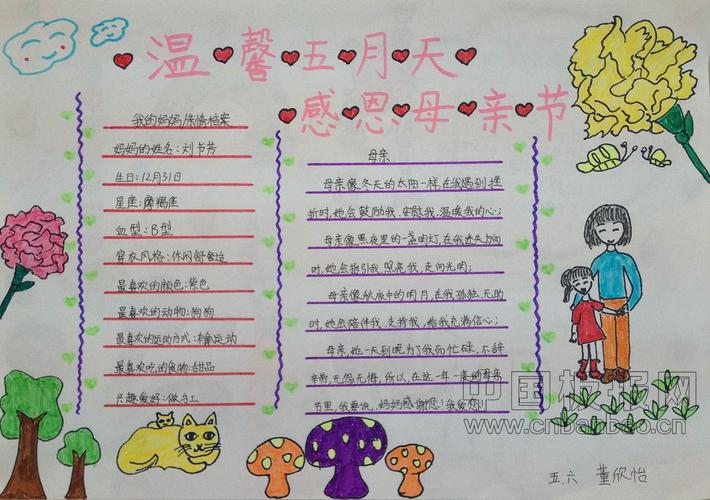 温馨五月天
感恩母亲节
我的妈妈/亲情档案
妈妈的姓名:刘书芳
生日:12月31日
星座:摩褐座
血型:B型
穿衣风格:休闲舒适
最喜欢的颜色:紫色
最喜欢的动物:狗狗
最喜欢的运动方式:运动
最喜欢吃的食物:甜品
兴趣爱好:做手工
母亲
母亲像冬天的太阳一样,在我遇到挫
折时,她会鼓励我、安慰我,温暖我的心;
母亲像黑夜里的一盏明灯,在我迷失方向
时,她会指引我、照亮我,走向光明;
母亲像秋夜中的明月,在我孤独、无助
时,她会陪伴我、支持我,给我充满信心;
母亲,她一天到晚为了我而忙碌,不辞
辛劳,无怨无悔,所以,在这一年一度的母亲
节里,我要说:妈妈感谢您!我爱您!
中国板报网
www.cnbanbao.cn
五.六 董欣怡